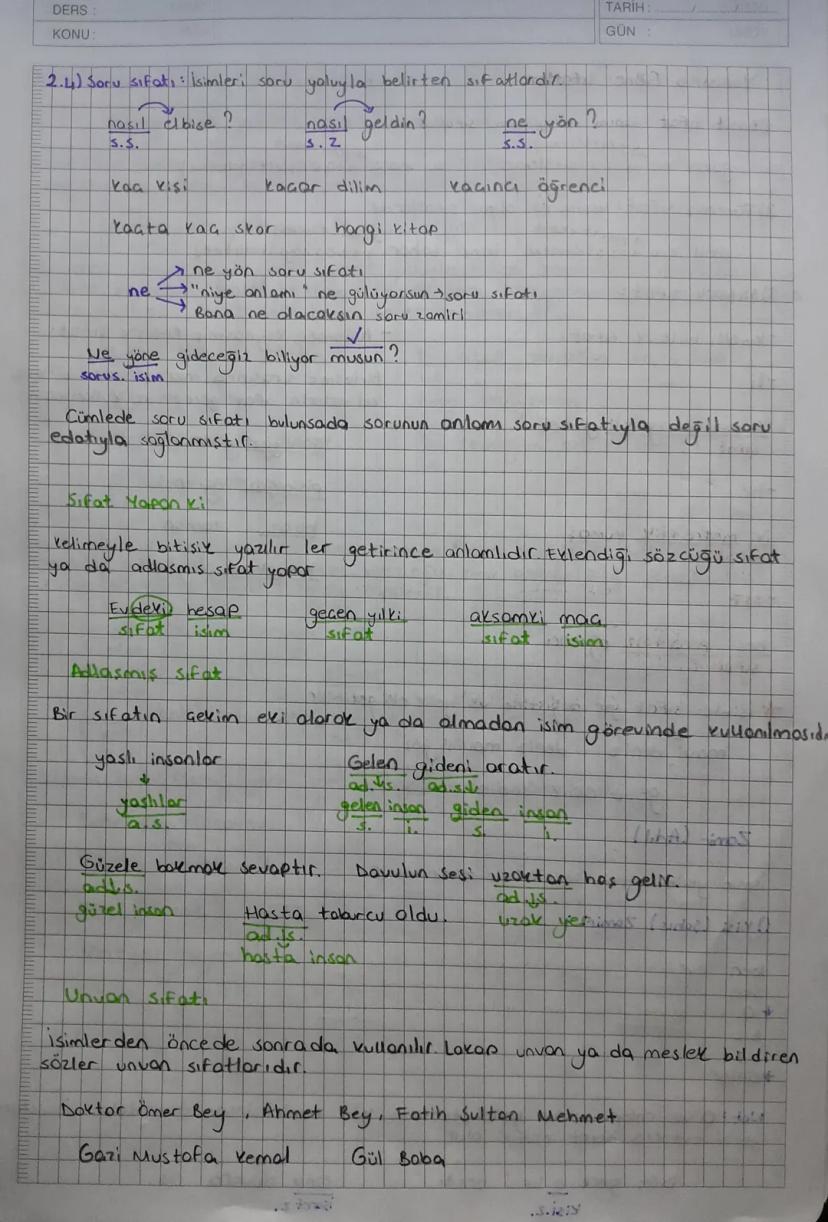 DERS :
TARİH : / /
KONU :
GÜN :
2.4) Soru sıfatı : İsimleri soru yoluyla belirten sıfatlardır.
nasıl elbise ? nasıl geldin ? ne yön ?
s.s. s.z s.s.
kaç kişi kaçar dilim kaçıncı öğrenci
kaçta kaç skor hangi kitap
ne yön soru sıfatı
ne → "niye anlamı" ne gülüyorsun → soru sıfatı
Bana ne alacaksın soru zamiri
✓
Ne yöne gideceğiz biliyor musun ?
sorus. isim
Cümlede soru sıfatı bulunsada sorunun anlamı soru sıfatıyla değil soru
edatıyla sağlanmıştır.
Sıfat Yapan ki
Kelimeyle bitişik yazılır ler getirince anlamlıdır. Eklendiği sözcüğü sıfat
ya da adlaşmış sıfat yapar
Evdeki hesap geçen yılki akşamki maç
sıfat isim sıfat sıfat isim
Adlaşmış sıfat
Bir sıfatın çekim eki alarak ya da almadan isim görevinde kullanılmasıdır
yaşlı insanlar Gelen gideni aratır.
ad.l.s. ad.s.
yaşlılar gelen insan giden insan
a.s. s. i. s. i.
Güzele bakmak sevaptır. Davulun sesi uzaktan hoş gelir.
adl.s. ad.ls.
güzel insan Hasta taburcu oldu. uzak yer
ad.ls.
hasta insan
Unvan sıfatı
İsimlerden öncede sonrada kullanılır. Lakap unvan ya da meslek bildiren
sözler unvan sıfatlarıdır.
Doktor Ömer Bey , Ahmet Bey , Fatih Sultan Mehmet
Gazi Mustafa Kemal Gül Baba